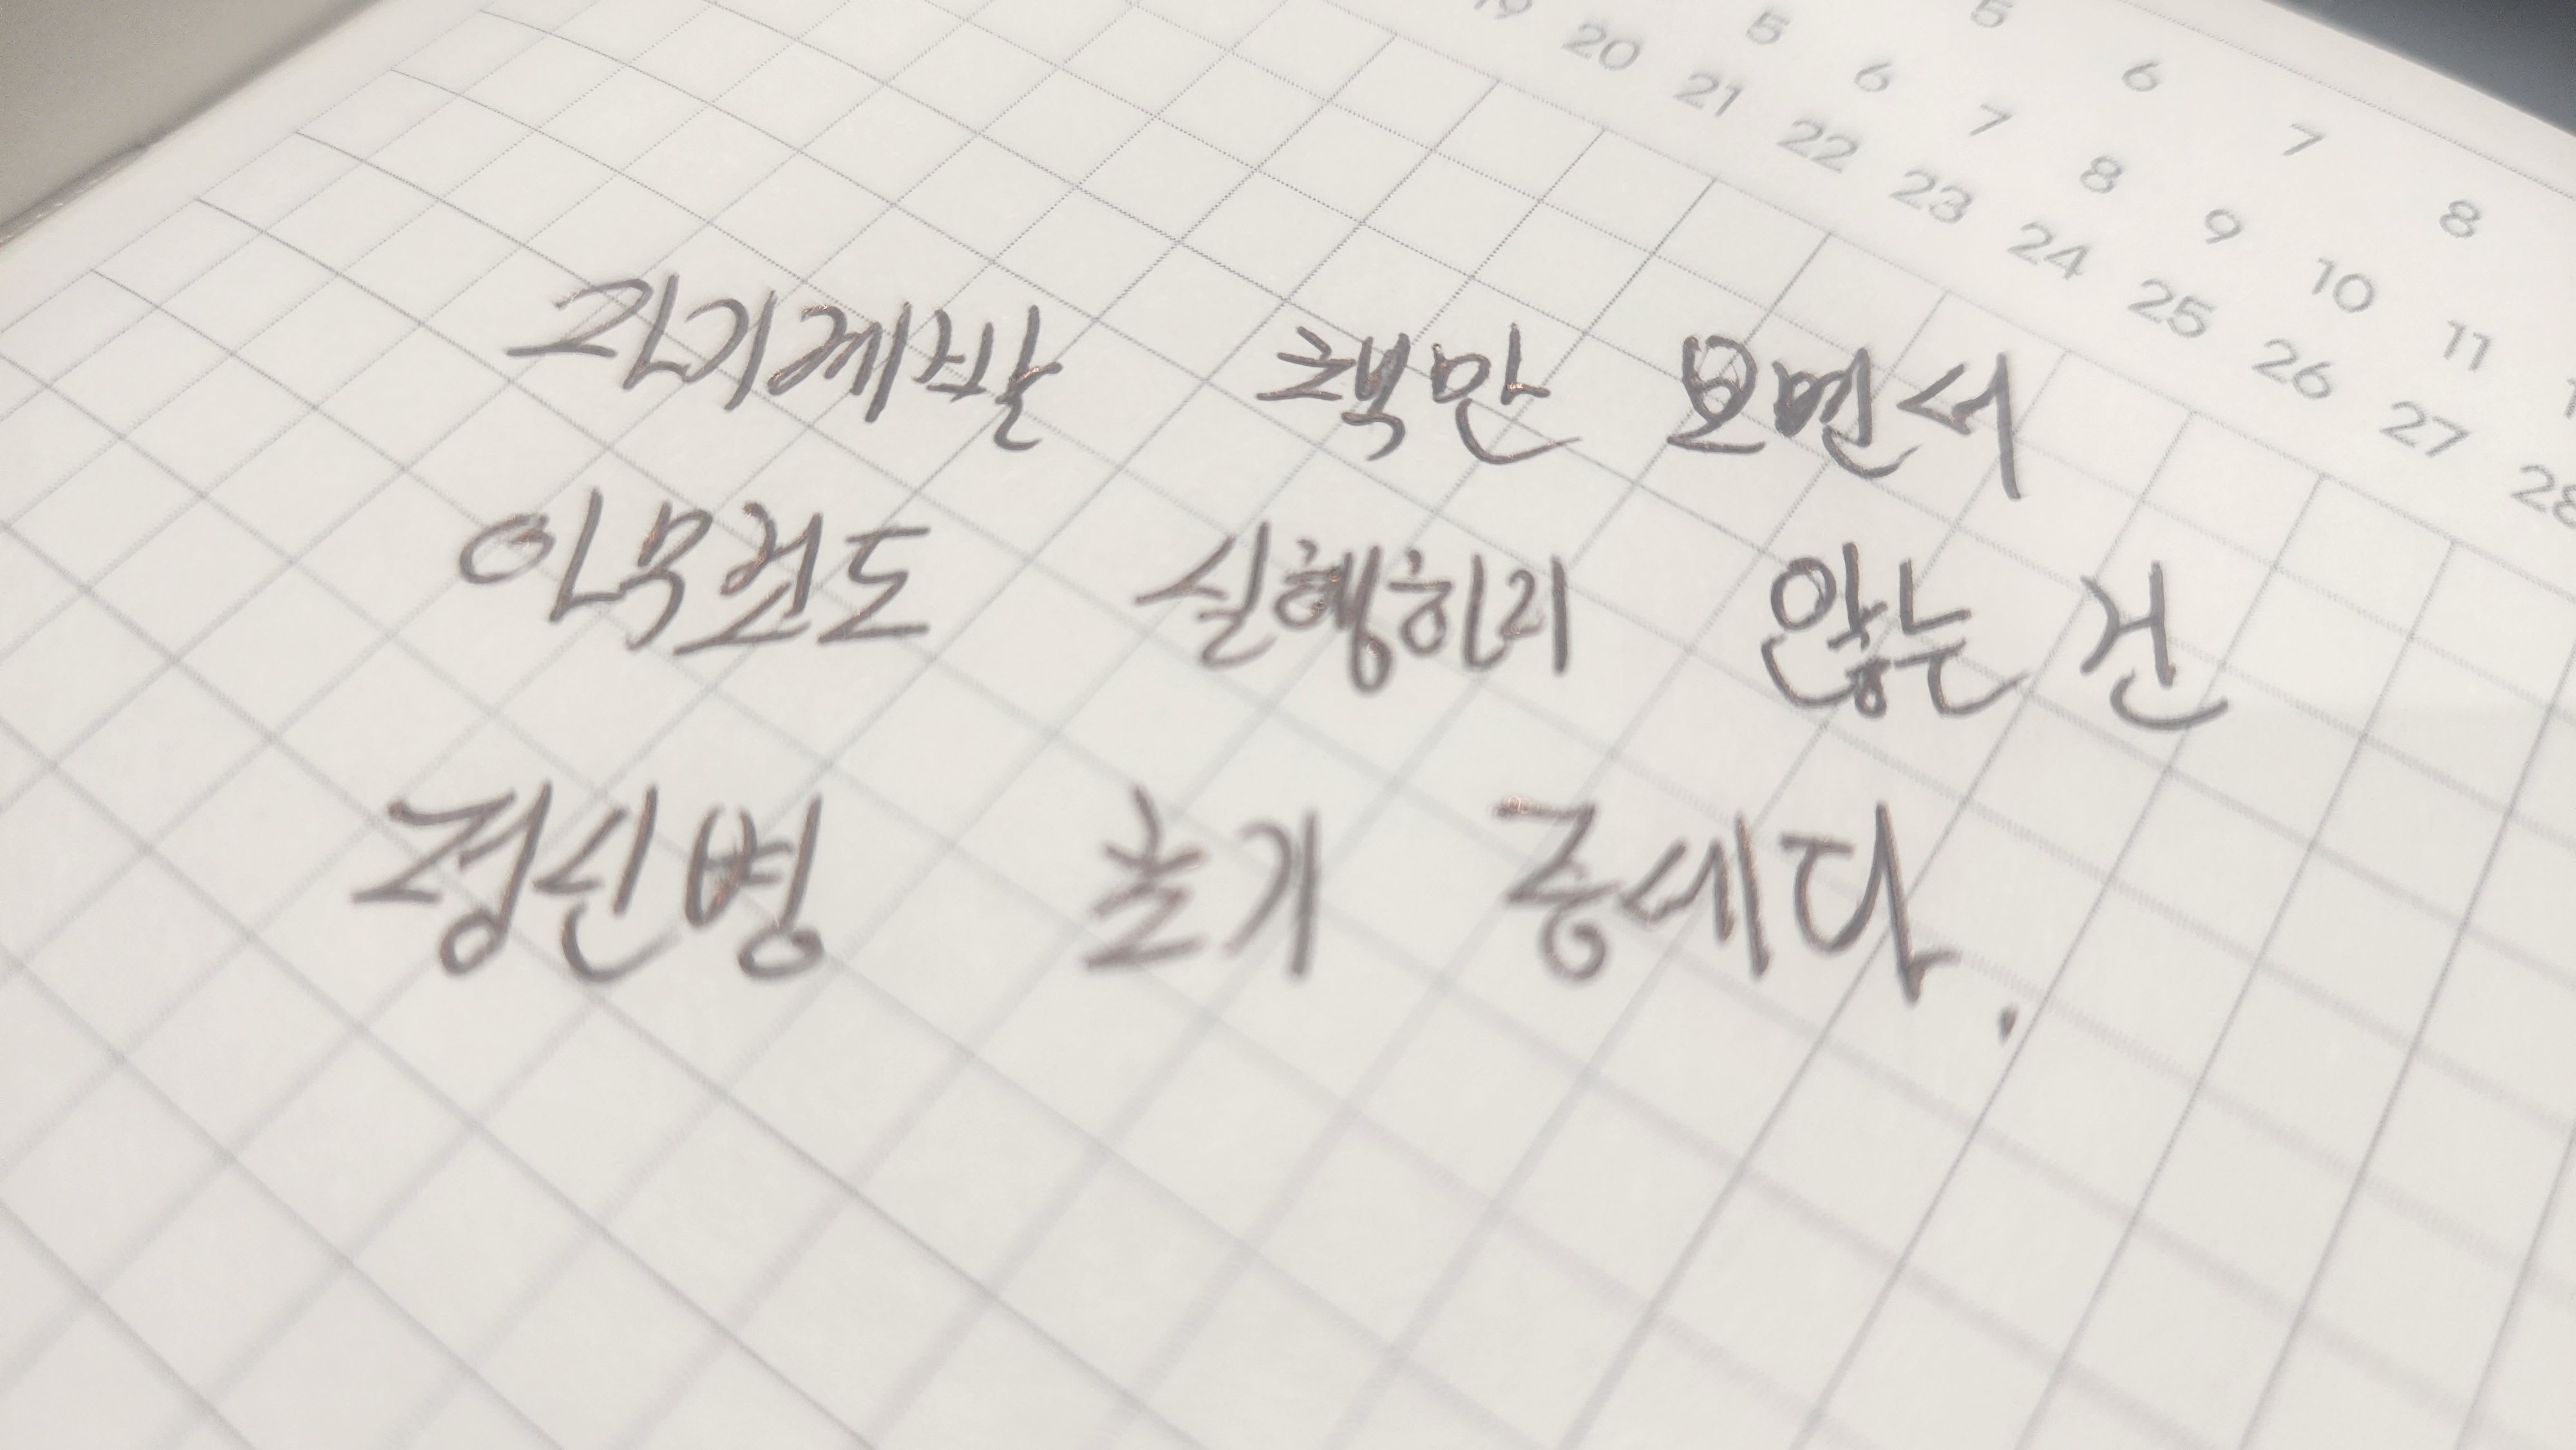 5 6 7 8
5 6 7 8 9 10 11
19 20 21 22 23 24 25 26 27 28
자기계발 책만 보면서
아무것도 실행하지 않는 건
정신병 초기 증세다.